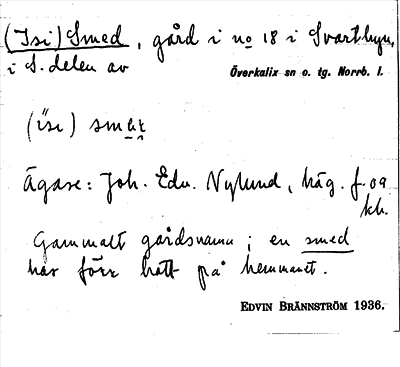 (Isi) Smed, gård i no 18 i Svartbyn,
i S. delen av
Överkalix sn o. tg. Norrb. l.
(ïsi)
Ägare: Joh. Edv. Nylund, häg. f. 09
kh.
Gammalt gårdsnamn; en smed
har förr bott på hemmanet.
EDVIN BRÄNNSTRÖM 1936.